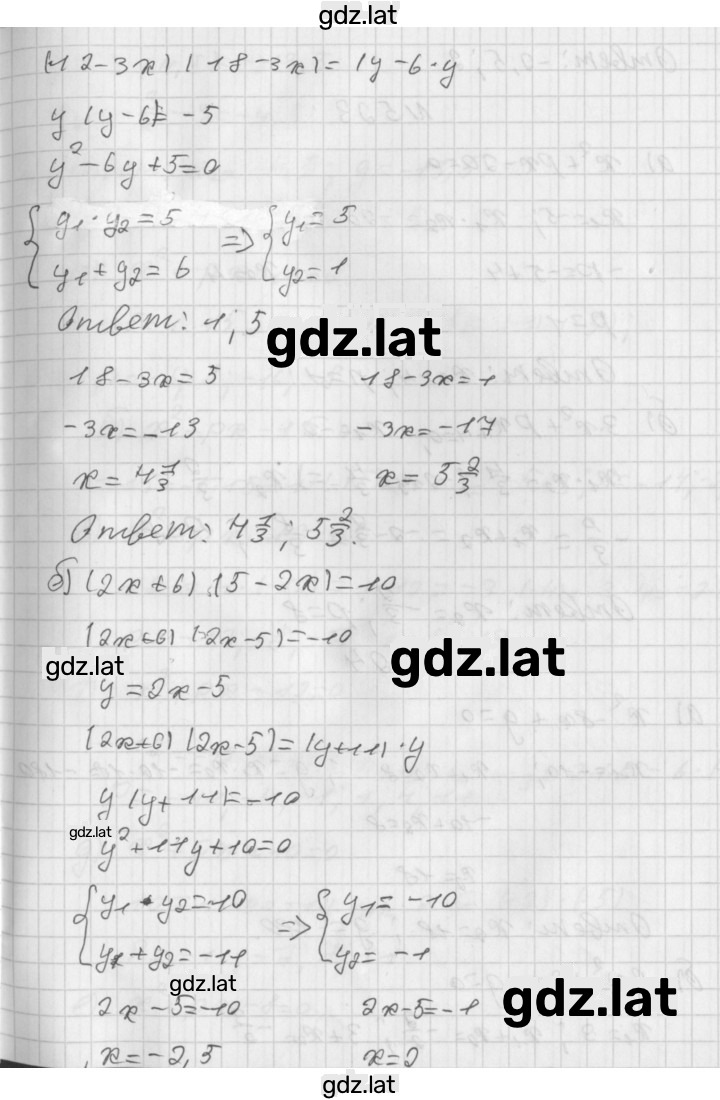 gdz.lat
(12-3x)(18-3x)=(y-6·y
y(y-6)=-5
y²-6y+5=0
{y₁·y₂=5 => {y₁=5
{y₁+y₂=6 {y₂=1
Ответ: 1; 5
gdz.lat
18-3x=5 18-3x=1
-3x=-13 -3x=-17
x=4 1/3 x=5 2/3
Ответ: 4 1/3; 5 2/3.
б) (2x+6)(5-2x)=10
(2x+6)(2x-5)=-10
gdz.lat gdz.lat
y=2x-5
(2x+6)(2x-5)=(y+11)·y
y(y+11)=-10
gdz.lat
y²+11y+10=0
{y₁·y₂=10 => {y₁=-10
{y₁+y₂=-11 {y₂=-1
gdz.lat gdz.lat
2x-5=-10 2x-5=-1
x=-2,5 x=2
gdz.lat